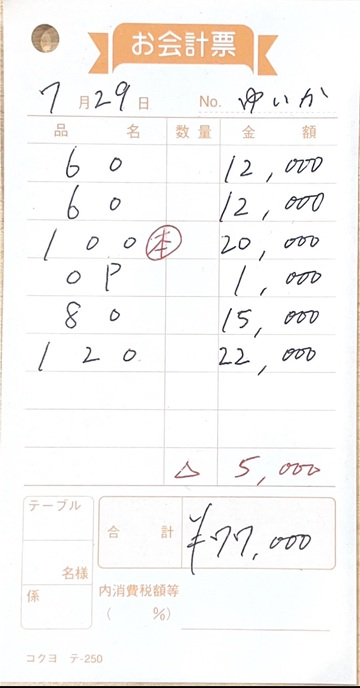 お会計票
7月29日 No. ゆいか
品名 数量 金額
60 12,000
60 12,000
100 本 20,000
OP 1,000
80 15,000
120 22,000
△ 5,000
テーブル
名様
合計 ¥77,000
係
内消費税額等
( %)
コクヨ テ-250